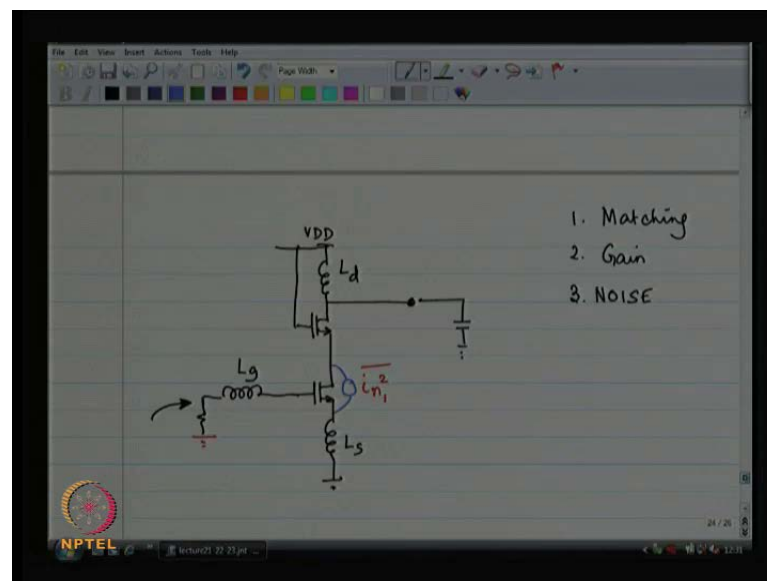 File Edit View Insert Actions Tools Help
Page Width
B I
VDD
Ld
1. Matching
2. Gain
3. NOISE
Lg
in1²
Ls
24 / 26
NPTEL
lecture21-22-23.jnt - ...
12:31